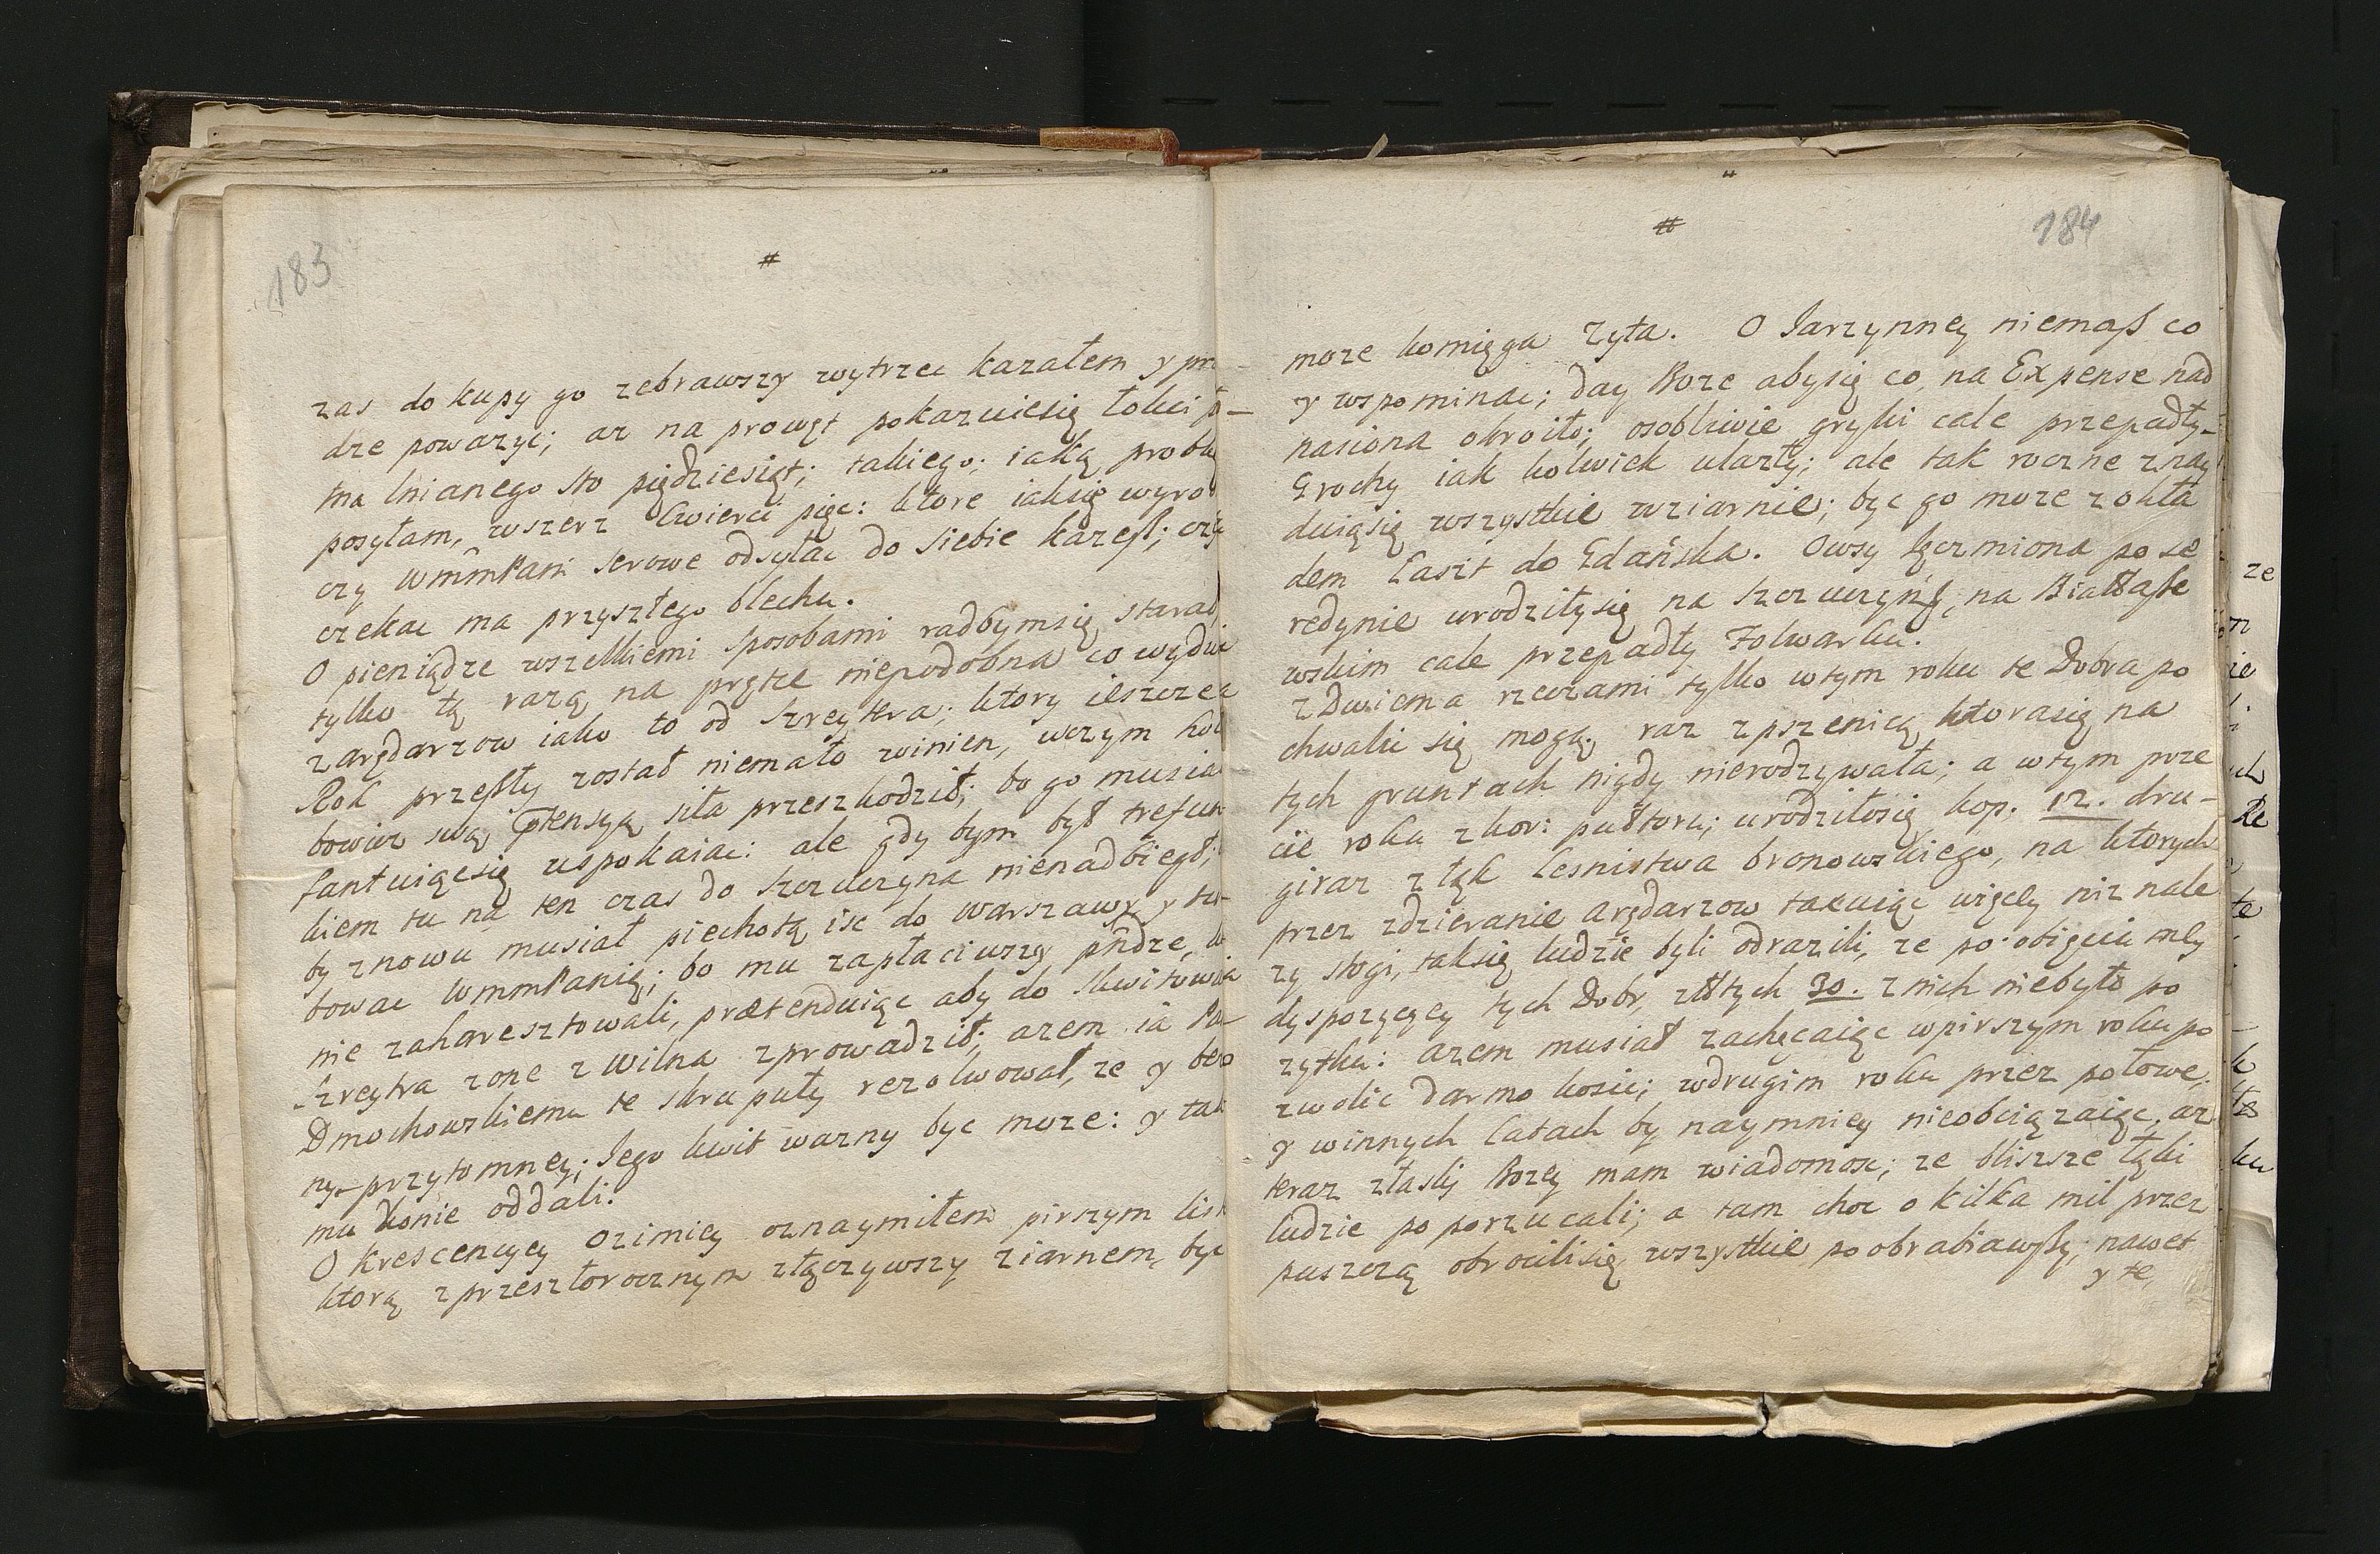 183
#
zas do kupy go zebrawszy wytrzec kazałem y pr
dze powazyć; az na prowęt pokazuiesię łokci pł-
tna lnianego sto pięćdziesiąt; takiego; iaką probkę
posyłam, wszerz Cwierci pięć: ktore iaksię wyro
czy WmmPani serowe odsyłac do siebie kazesz; czy
czekac ma przyszłego blechu.
O pieniądze wszelkiemi sposobami radbymsię starał,
tylko tą razą na prętce niepodobna co wydu
z arędarzow iako to od Szreytera; ktory ieszcze z
Rok przeszły został niemało winien, wczym
bowicz swą ptensyą siła przeszkodził; bo go musia
fantuiącsię uspokaiac: ale gdy bym był trefun
kiem tu na ten czas do Szczuczyna nienadbiegł;
by znowu musiał piechotą isc do Warszawy y tu-
bowac WmmPanią; bo mu zapłaciwszy pńdze,
nie zaharesztowali, prætenduiąc aby do skwitowa
Szreytra zone z Wilna zprowadził; azem ia Pa-
Dmochowskiemu te skrupuły rezolwował, ze y bez
ny przytomney; Iego kwit wazny byc moze: y tak
mu konie oddali.
O krescencyey ozimiey oznaymiłem pirszym list
ktorą z przeszłorocznym złączywszy ziarnem, byc
#
184
moze komięga Zyta. O Iarzynney niemasz co
y wspominac; day Boze abysię co, na Expense nad
nasiona okroiło; osobliwie gryki cale przepadły-
Grochy iak kolwiek ulazły; ale tak roczne znay
duiąsię wszystkie wziarnie; byc go moze z okła
dem Łaszt do Gdańska. Owsy Ięczmiona po se
redynie urodziłysię na Szczuczyńs, na Białasze
wskim cale przepadły Folwarku.
z Dwiema rzeczami tylko wtym roku te Dobra po
chwalic się mogą. raz z pszenicą ktorasię na
tych gruntach nigdy nierodzywała; a wtym prze
cie roku z kor: pułtoru; urodziłosię kop. 12. dru-
giraz z łąk Lesnistwa bronowskiego, na ktorych
przez zdzieranie arędarzow taxuiąc więcey niz nale
zy stogi, taksię ludzie byli odrazili, ze po obięciu mey
dyspozycyey tych Dobr, złłtych 30. z nich niebyło po
zytku: azem musiał zachęcaiąc wpirszym roku po
zwolic darmo kosic; wdrugim roku przez połowe;
y winnych Latach by naymniey nieobciązaiąc, az
teraz złaski Bozey mam wiadomosc; ze bliszsze łąki
ludzie poporzucali; a tam choc o kilka mil przez
puszczą obrocilisię wszystkie poobrabiawszy; nawet
y te,